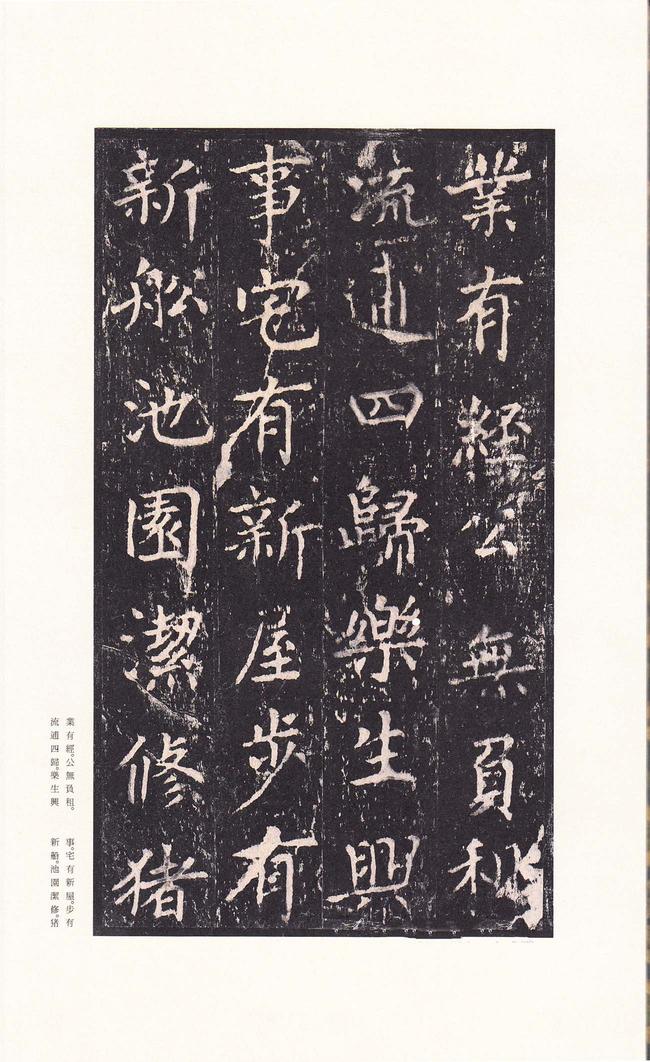 業有經公無負租
流通四歸樂生興
事宅有新屋步有
新船池園潔修猪
業有經。公無負租。
流通四歸。樂生興
事。宅有新屋。步有
新船。池園潔修。猪